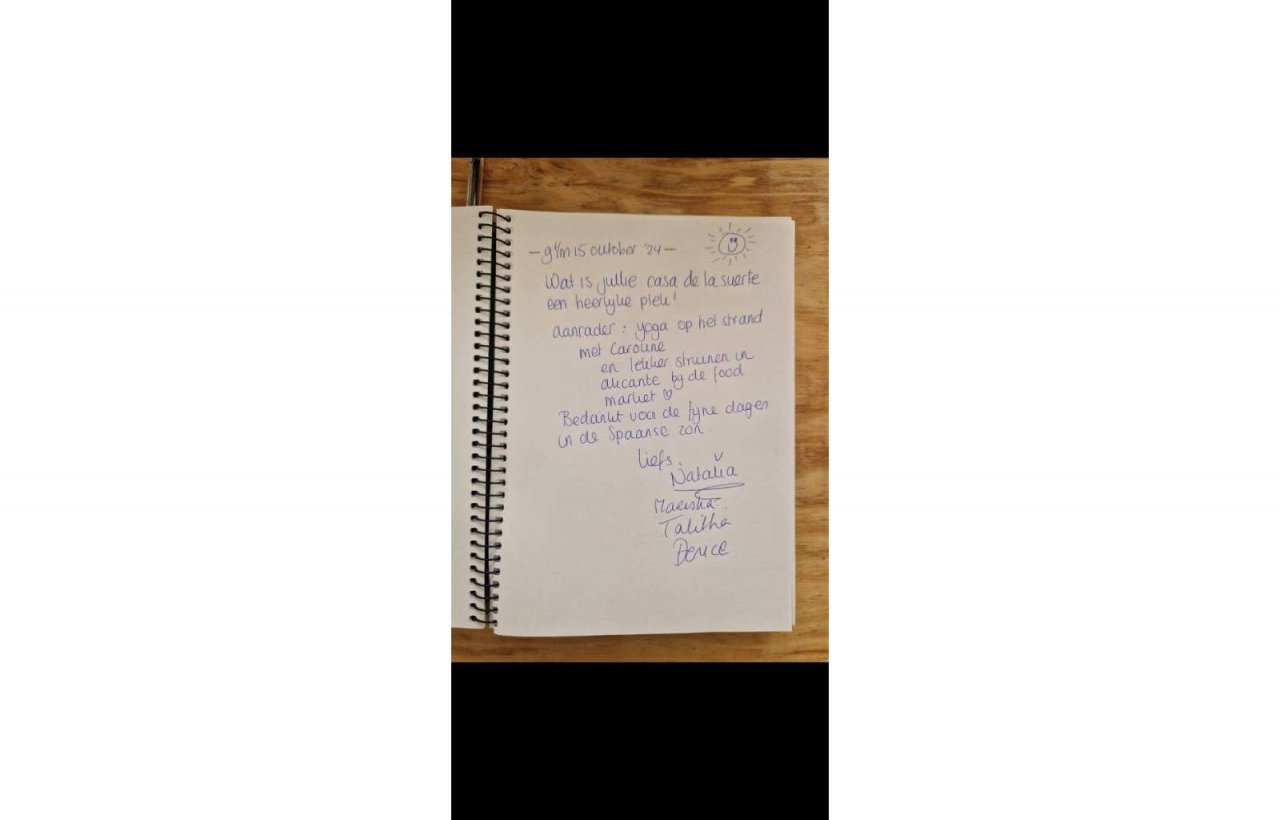 - 9 t/m 15 october '24 -
Wat is jullie casa de la suerte
een heerlijke plek!
aanrader : yoga op het strand
met Caroline
en lekker struinen in
alicante bij de food
market ♡
Bedankt voor de fijne dagen
in de Spaanse zon.
liefs,
Natalia
Talitha